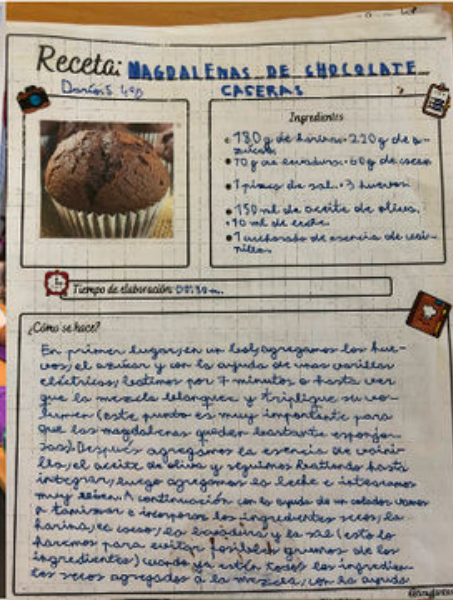 Receta: MAGDALENAS DE CHOCOLATE
Darío S. 4ºD CASERAS
Ingredientes
• 180 g de harina • 220 g de azúcar
• 10 g de levadura • 60 g de cacao
• 1 pizca de sal • 3 huevos
• 150 ml de aceite de oliva
• 70 ml de leche
• 1 cucharada de esencia de vainilla
Tiempo de elaboración:
¿Cómo se hace?
En primer lugar, en un bol, agregamos los hue-
vos, el azúcar y con la ayuda de unas varillas
eléctricas, batimos por 7 minutos o hasta ver
que la mezcla blanquee y triplique su vo-
lumen (este punto es muy importante para
que las magdalenas queden bastante esponjo-
sas). Después agregamos la esencia de vaini-
lla, el aceite de oliva y seguimos batiendo hasta
integrar, luego agregamos la leche e integramos
muy bien. A continuación con la ayuda de un colador vamos
a tamizar e incorporar los ingredientes secos, la
harina, el cacao, la levadura y la sal (esto lo
haremos para evitar posibles grumos de los
ingredientes) cuando ya estén todos los ingredien-
tes secos agregados a la mezcla, con la ayuda